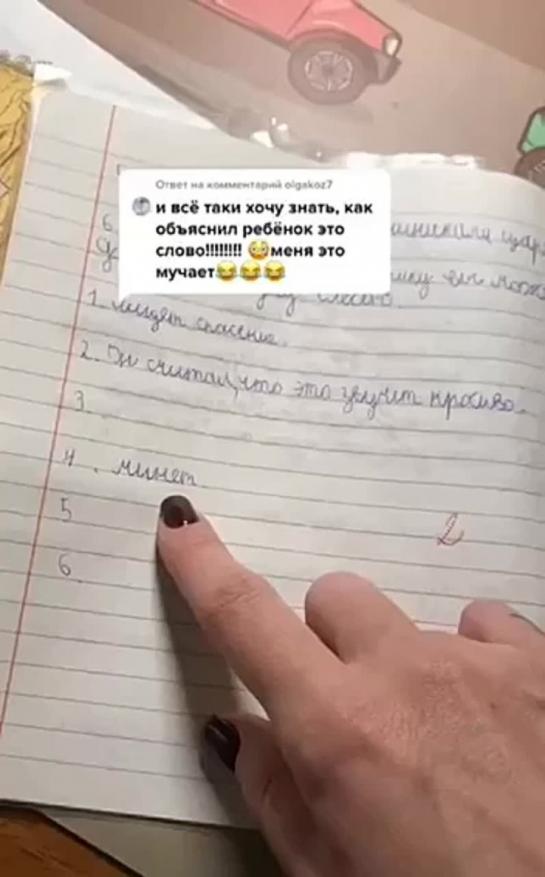 Ответ на комментарий olgakoz7
и всё таки хочу знать, как
объяснил ребёнок это
слово!!!!!!!! 😳меня это
мучает😂😂😂
6.
1. спасение.
2. Он считал, что это звучит красиво.
3.
4. минет
5
6.
2